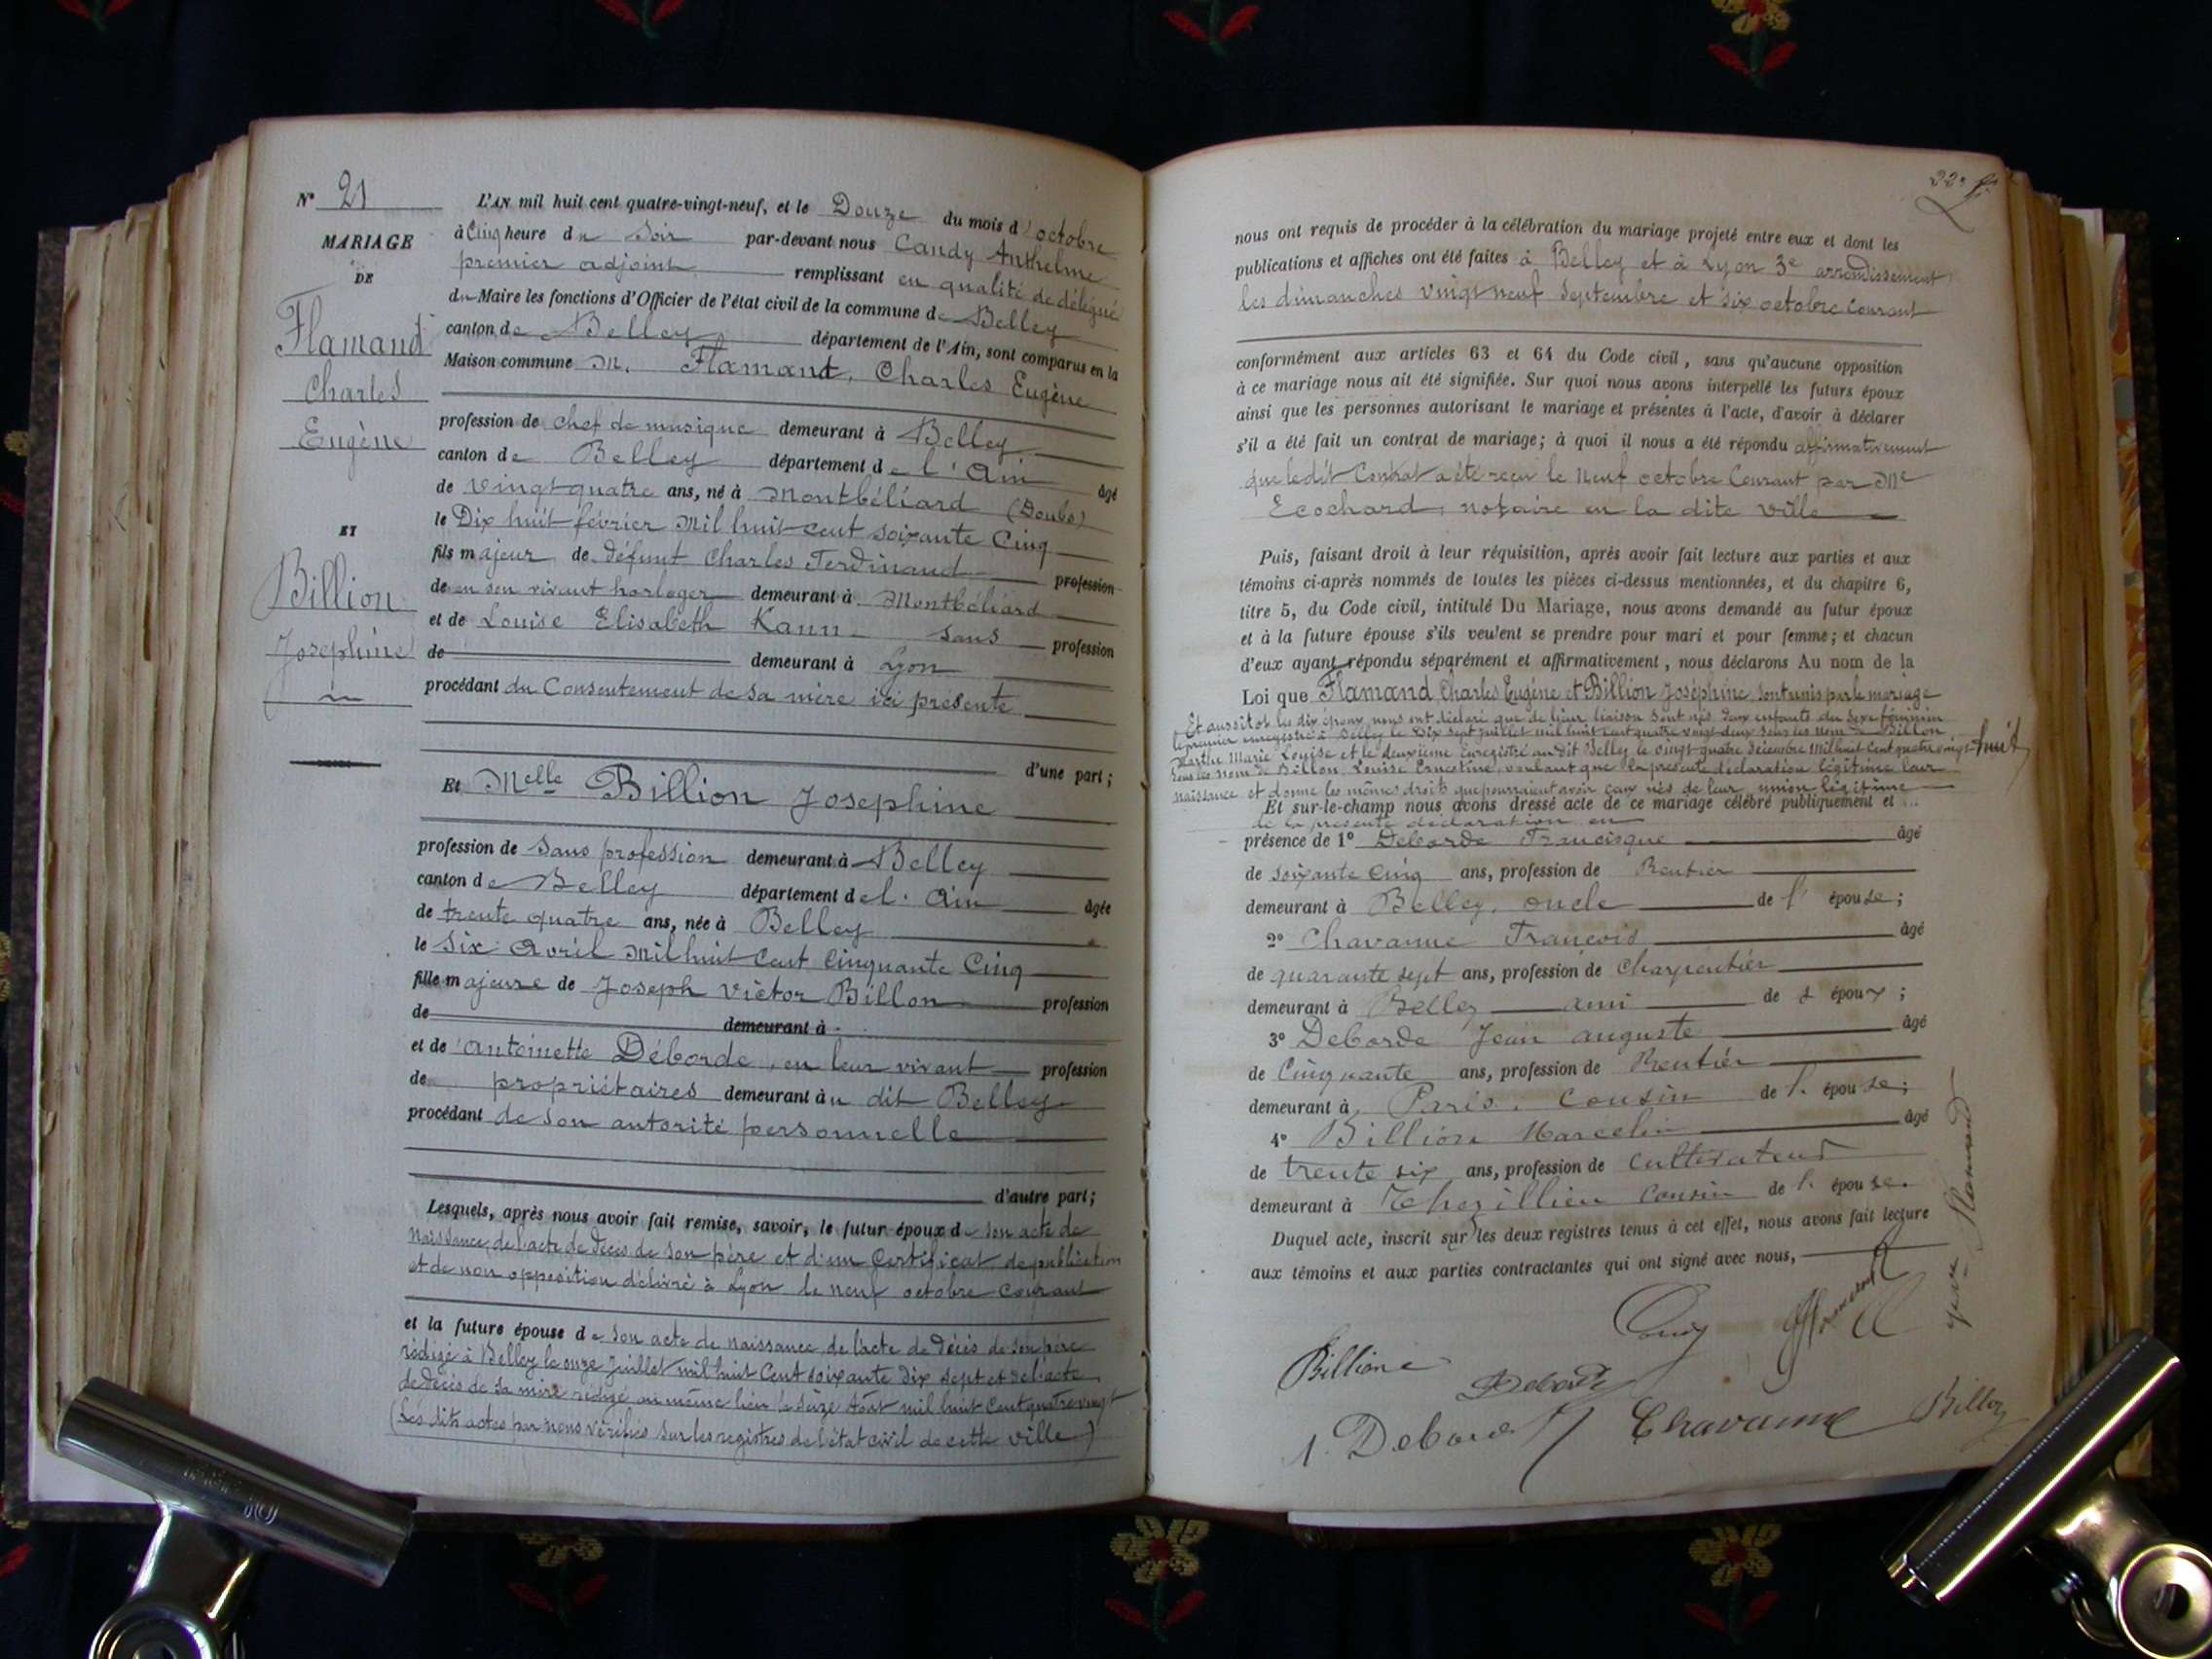 N° 21
MARIAGE
DE
Flamand
Charles
Eugène
ET
Billion
Josephine
L'AN mil huit cent quatre-vingt-neuf, et le Douze du mois d'octobre
à Cinq heure du Soir par-devant nous Candy Anthelme
premier adjoint remplissant en qualité de délégué
du Maire les fonctions d'Officier de l'état civil de la commune de Belley
canton de Belley département de l'Ain, sont comparus en la
Maison commune M. Flamand, Charles Eugène
profession de chef de musique demeurant à Belley
canton de Belley département de l'Ain âgé
de vingt quatre ans, né à Montbéliard (Doubs)
le Dix huit février Mil huit cent soixante Cinq
fils majeur de défunt Charles Ferdinand profession
de en son vivant horloger demeurant à Montbéliard
et de Louise Elisabeth Kann sans profession
de demeurant à Lyon
procédant du Consentement de sa mère ici présente
d'une part;
Et Melle Billion Josephine
profession de Sans profession demeurant à Belley
canton de Belley département de l'Ain âgée
de trente quatre ans, née à Belley
le Six Avril Mil huit Cent Cinquante Cinq
fille majeure de Joseph Victor Billon profession
de demeurant à
et de Antoinette Déborde, en leur vivant profession
de propriétaires demeurant au dit Belley
procédant de son autorité personnelle
d'autre part;
Lesquels, après nous avoir fait remise, savoir, le futur époux de son acte de
Naissance, de l'acte de décès de son père et d'un Certificat de publication
et de non opposition délivré à Lyon le neuf octobre courant
et la future épouse de son acte de naissance de l'acte de décès de son père
rédigé à Belley le onze Juillet mil huit Cent soixante dix sept et de l'acte
de décès de sa mère rédigé au même lieu le Seize Août mil huit Cent quatre vingt
(Les dits actes par nous vérifiés sur les registres de l'état civil de cette ville)
nous ont requis de procéder à la célébration du mariage projeté entre eux et dont les
publications et affiches ont été faites à Belley et à Lyon 3e arrondissement
les dimanches vingt neuf Septembre et six octobre Courant
conformément aux articles 63 et 64 du Code civil, sans qu'aucune opposition
à ce mariage nous ait été signifiée. Sur quoi nous avons interpellé les futurs époux
ainsi que les personnes autorisant le mariage et présentes à l'acte, d'avoir à déclarer
s'il a été fait un contrat de mariage; à quoi il nous a été répondu affirmativement
que le dit Contrat a été reçu le Neuf octobre Courant par Me
Ecochard, notaire en la dite ville
Puis, faisant droit à leur réquisition, après avoir fait lecture aux parties et aux
témoins ci-après nommés de toutes les pièces ci-dessus mentionnées, et du chapitre 6,
titre 5, du Code civil, intitulé Du Mariage, nous avons demandé au futur époux
et à la future épouse s'ils veulent se prendre pour mari et pour femme; et chacun
d'eux ayant répondu séparément et affirmativement, nous déclarons Au nom de la
Loi que Flamand, Charles Eugène et Billion Joséphine, sont unis par le mariage
Et aussitôt les dix époux nous ont déclaré que de leur liaison sont nés deux enfants du sexe féminin
le premier enregistré à Belley le Dix sept juillet mil huit cent quatre vingt deux sous les nom de Billon
Marthe Marie Louise et le deuxième Enregistré au dit Belley le vingt quatre décembre Mil huit Cent quatre vingt huit
sous les nom de Billon Louise Ernestine, voulant que la présente déclaration légitime leur
naissance et donne les mêmes droits que pourraient avoir ceux nés de leur union légitime
Et sur-le-champ nous avons dressé acte de ce mariage célébré publiquement et
de la présente déclaration en
présence de 1° Deborde Francisque âgé
de soixante Cinq ans, profession de Rentier
demeurant à Belley, oncle de l'épouse;
2° Chavanne François âgé
de quarante sept ans, profession de Charpentier
demeurant à Belley ami de l'époux;
3° Deborde Jean Auguste âgé
de Cinquante ans, profession de Rentier
demeurant à Paris, Cousin de l'épouse;
4° Billion Marcelin âgé
de trente six ans, profession de Cultivateur
demeurant à Thezillieu Cousin de l'épouse.
Duquel acte, inscrit sur les deux registres tenus à cet effet, nous avons fait lecture
aux témoins et aux parties contractantes qui ont signé avec nous,
Candy
Billion
Chavanne